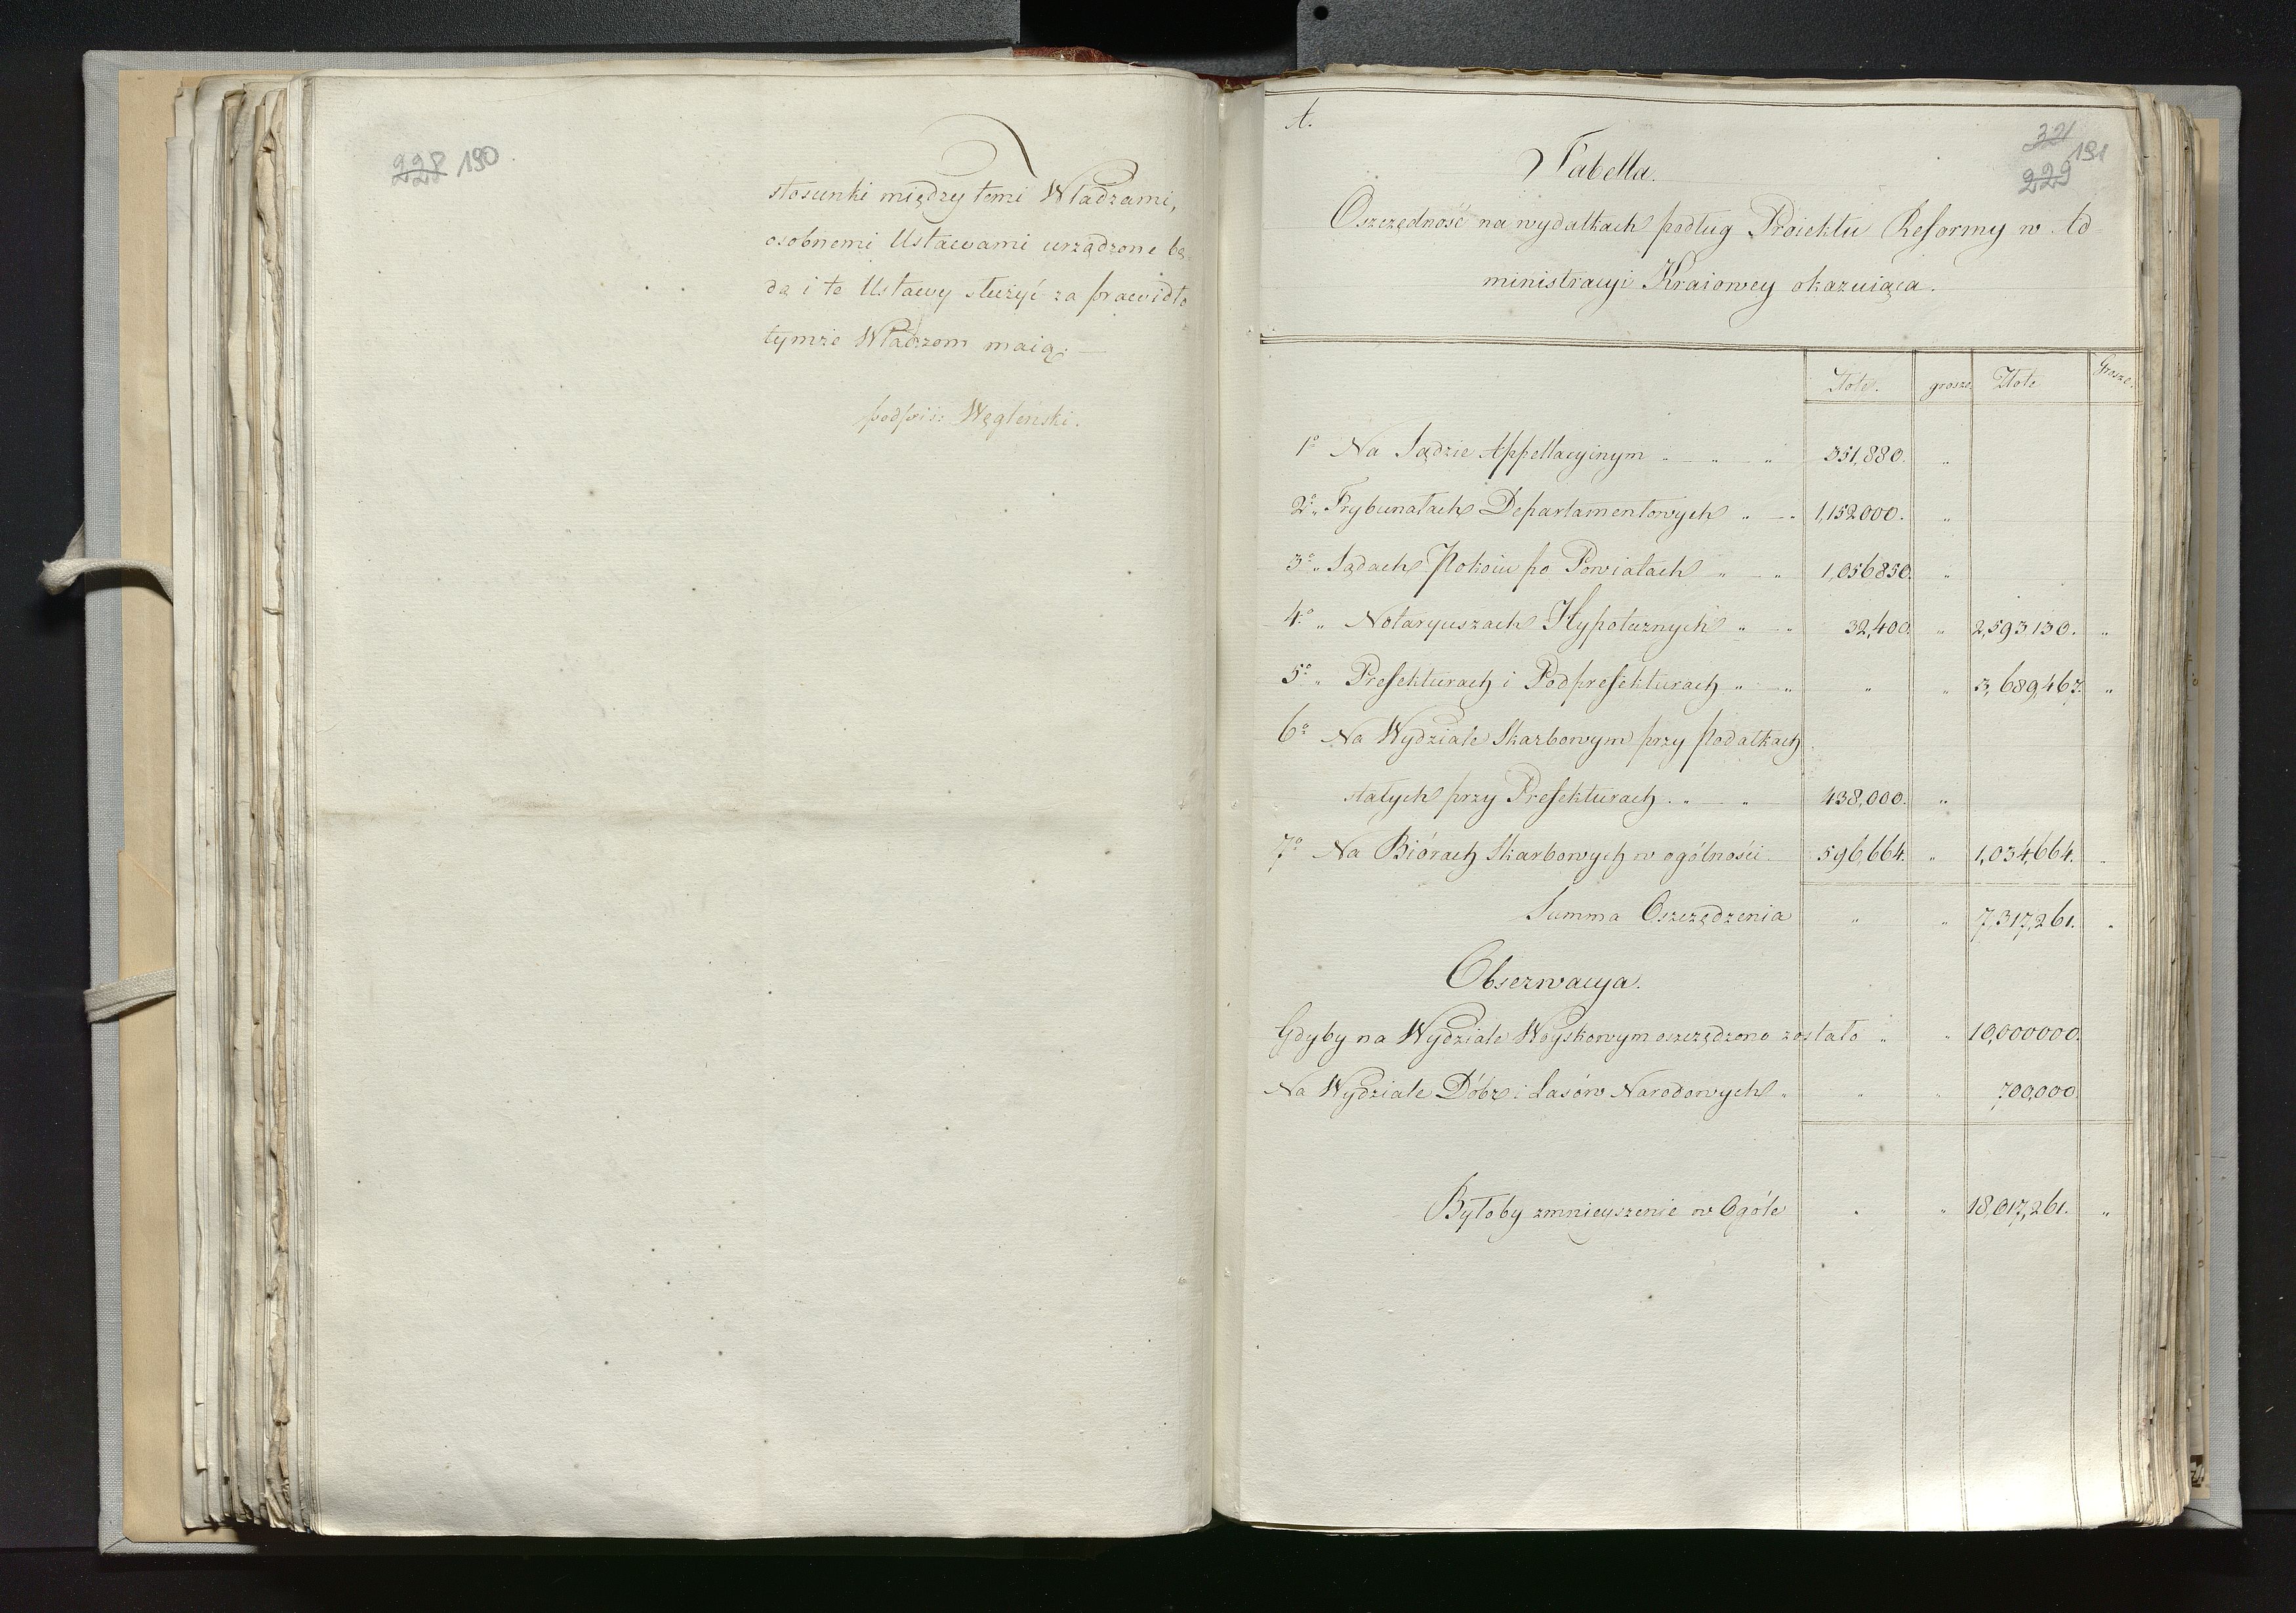 228 190
stosunki między temi Władzami,
osobnemi Ustawami urządzone bę-
dą i te Ustawy służyć za prawidło
tymże Władzom maią. —
podpis: Węgleński.
A.
321
191
229
Tabella.
Oszczędność na wydatkach podług Proiektu Reformy w Ad-
ministracyi Kraiowey okazuiąca.
Złote. grosze. Złote Grosze.
1º Na Sądzie Appellacyinym " — " — " 351,880. "
2º " Trybunałach Departamentowych " — " 1,152000. "
3º " Sądach Pokoiu po Powiatach " — " 1,056850. "
4º " Notaryuszach Hypotecznych " — " 32,400. " 2,593130. "
5º " Prefekturach i Podprefekturach " — " " " 3,689,467. "
6º Na Wydziale Skarbowym przy Podatkach
stałych przy Prefekturach . " — " 438,000. "
7º Na Biórach Skarbowych w ogólności. 596,664. " 1,034,664. "
Summa Oszczędzenia " " 7,317,261. "
Obserwacya.
Gdyby na Wydziale Woyskowym oszczędzono zostało " " 10,000000.
Na Wydziale Dóbr i Lasów Narodowych " " " 700,000.
Byłoby zmnieyszenie w Ogóle " " 18,017,261. "